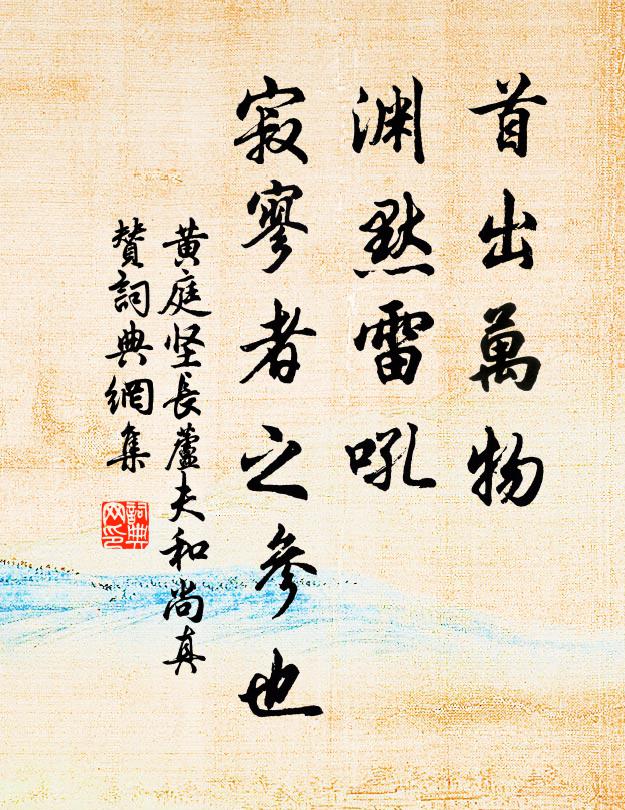 首出萬物
淵默雷吼
寂寥者之參也
黄庭坚長蘆夫和尚真
贊詞典網集
詞典
网印